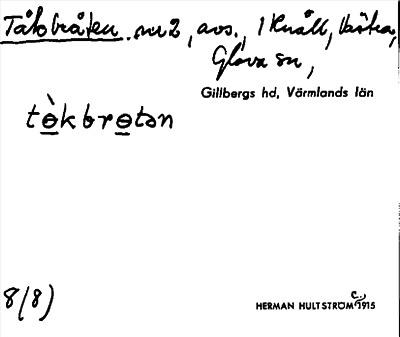 Tåkbråten nr 2, avs., 1 Knåll, Västra,
Glava sn,
Gillbergs hd, Värmlands län
tɵ̀kbrɵtən
8(8)
HERMAN HULTSTRÖM c. 1915